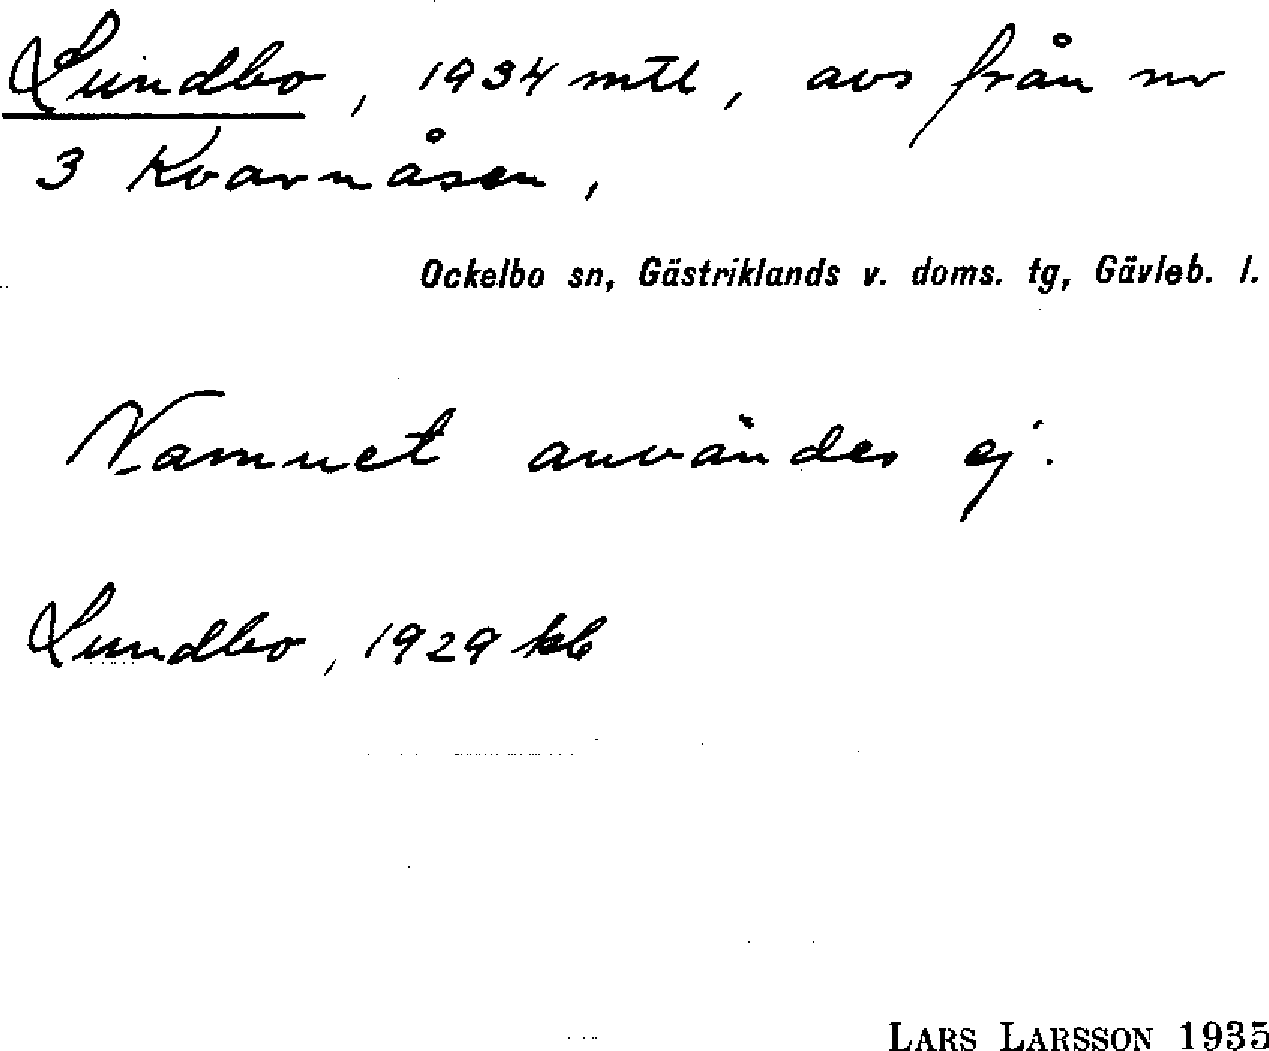 Lundbo, 1934 mtl, avs från nr
3 Kvarnåsen,
Ockelbo sn, Gästriklands v. doms. tg, Gävleb. l.
Namnet användes ej.
Lundbo, 1929 kb
LARS LARSSON 1935